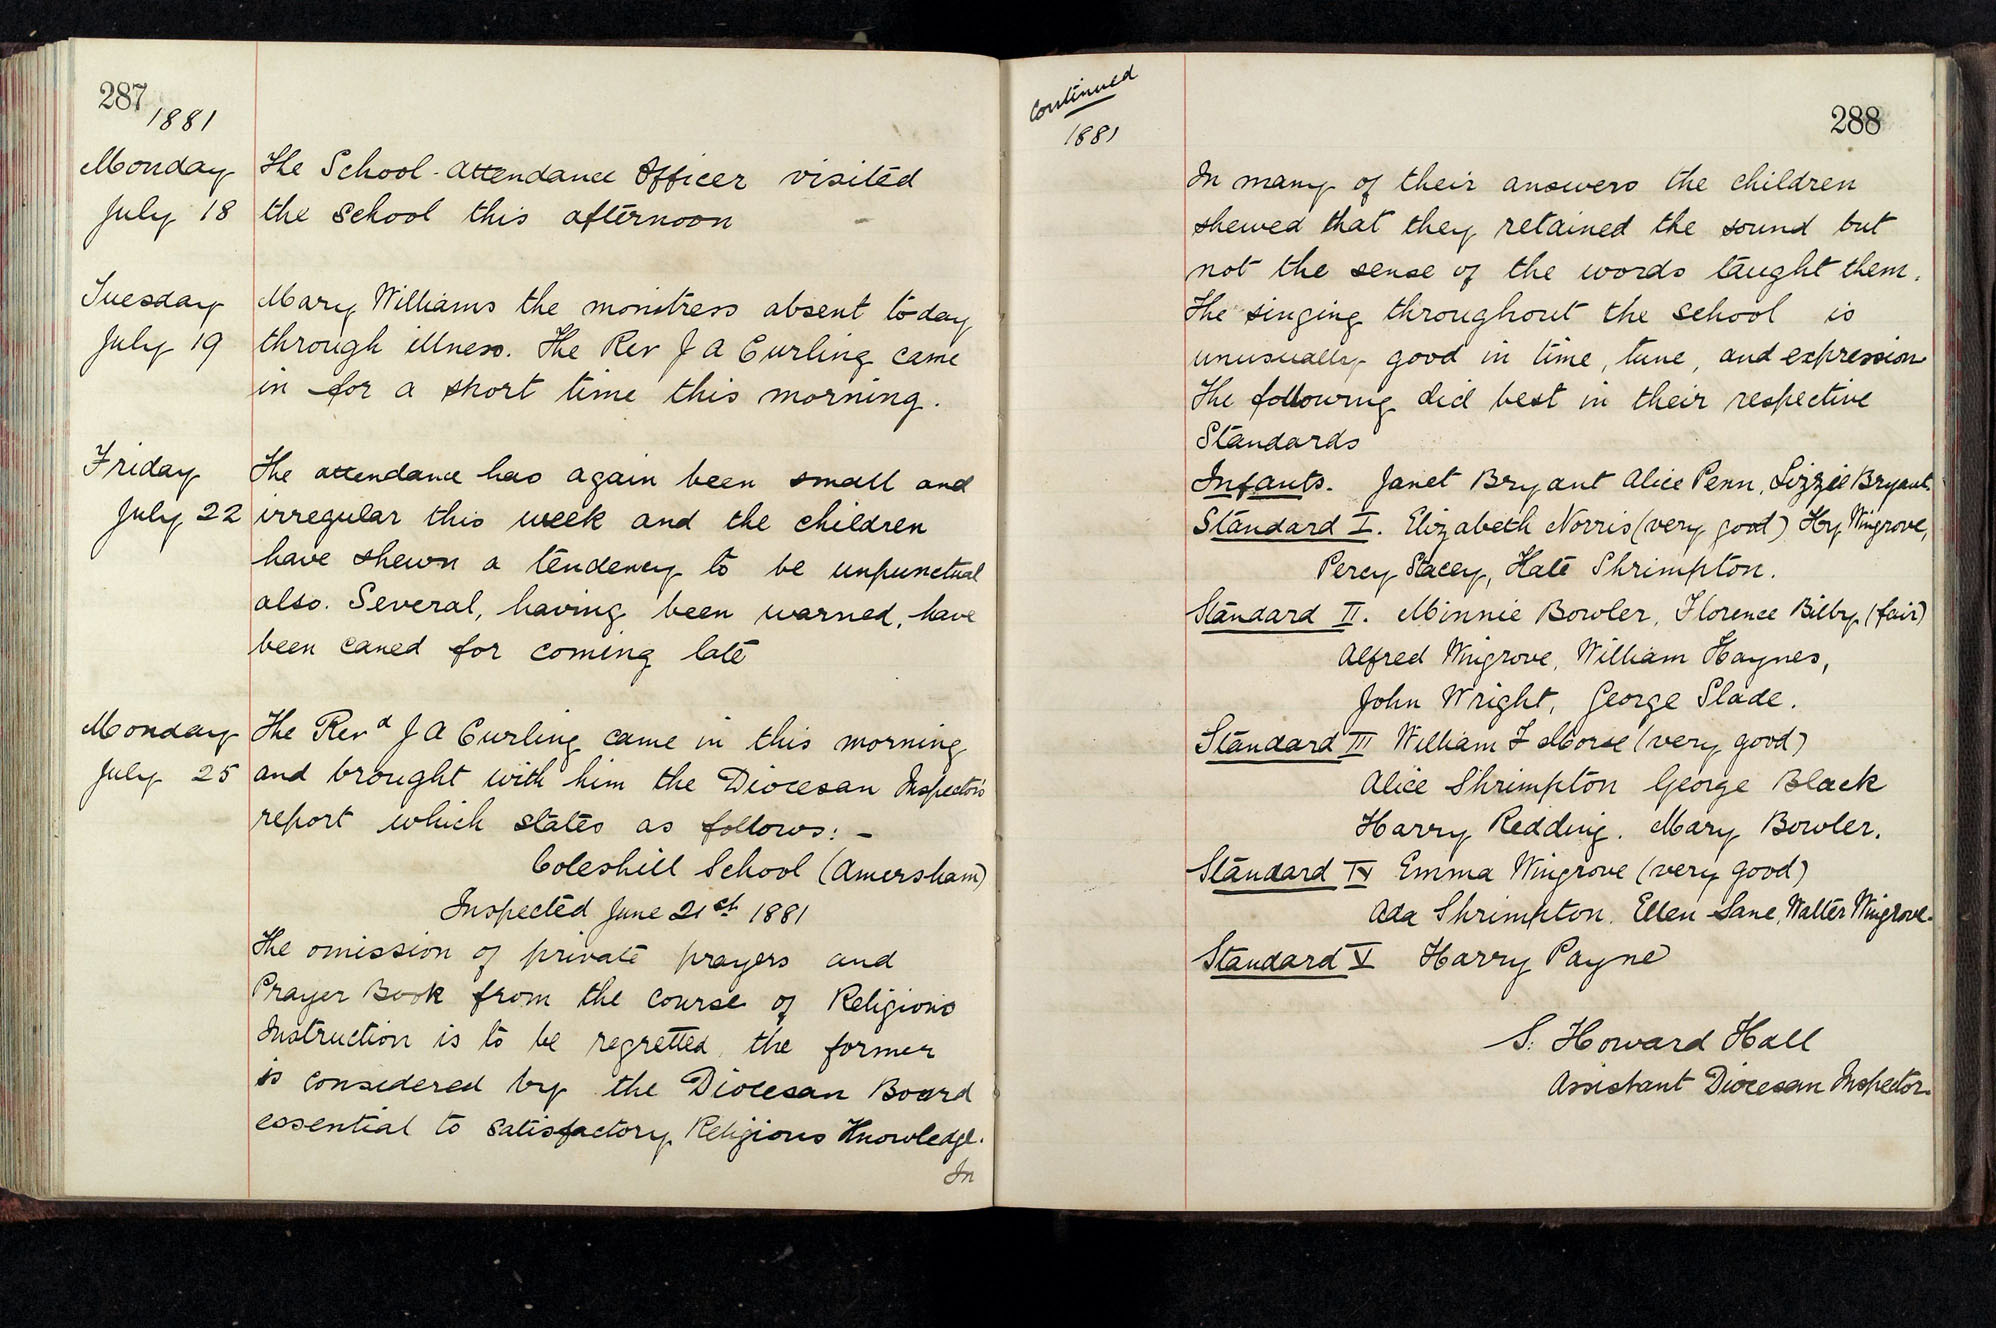 287
1881
Monday
July 18
The School-Attendance Officer visited
the school this afternoon
Tuesday
July 19
Mary Williams the monitress absent today
through illness. The Rev J A Curling came
in for a short time this morning.
Friday
July 22
The attendance has again been small and
irregular this week and the children
have shewn a tendency to be unpunctual
also. Several, having been warned, have
been caned for coming late
Monday
July 25
The Revd J A Curling came in this morning
and brought with him the Diocesan Inspector's
report which states as follows: -
Coleshill School (Amersham)
Inspected June 21st 1881
The omission of private prayers and
Prayer Book from the course of Religious
Instruction is to be regretted, the former
is considered by the Diocesan Board
essential to satisfactory Religious Knowledge.
In
Continued
1881
288
In many of their answers the children
shewed that they retained the sound but
not the sense of the words taught them.
The singing throughout the school is
unusually good in time, tune, and expression
The following did best in their respective
Standards
Infants. Janet Bryant Alice Penn, Lizzie Bryant.
Standard I. Elizabeth Norris (very good) Hy Wingrove,
Percy Stacey, Kate Shrimpton.
Standard II. Minnie Bowler, Florence Bilby (fair)
Alfred Wingrove, William Haynes,
John Wright, George Slade.
Standard III William F Morse (very good)
Alice Shrimpton George Black
Harry Redding. Mary Bowler.
Standard IV Emma Wingrove (very good)
Ada Shrimpton. Ellen Lane, Walter Wingrove.
Standard V Harry Payne
S. Howard Hall
Assistant Diocesan Inspector.